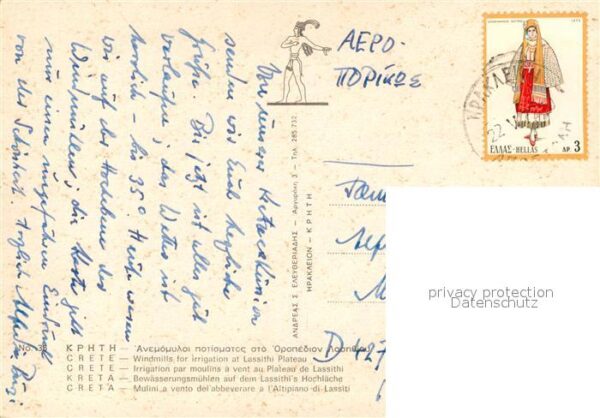 Von unserer Kretaexkursion
senden wir Euch herzliche
Grüße. Bis jetzt ist alles gut
verlaufen, das Wetter ist
herrlich – bis 35° Heute waren
wir auf der Hochebene der
Windmühlen, die Karte gibt
nur einen ungefähren Eindruck
von der Schönheit. Herzlich
ΑΕΡΟ-
ΠΟΡΙΚΩΣ
1972
ΕΛΛΑΣ-HELLAS ΔΡ 3
ΗΡΑΚΛΕΙ
22
ΑΝΔΡΕΑΣ Σ. ΕΛΕΥΘΕΡΙΑΔΗΣ — Αργυράκη 3 — Τηλ. 285 732
ΗΡΑΚΛΕΙΟΝ - ΚΡΗΤΗ
Fam
D 427
privacy protection
Datenschutz
No 38
ΚΡΗΤΗ — Ανεμόμυλοι ποτίσματος στο Οροπέδιον Λασηθίου
CRETE — Windmills for irrigation at Lassithi Plateau
CRETE — Irrigation par moulins à vent au Plateau de Lassithi
KRETA — Bewässerungsmühlen auf dem Lassithi's Hochläche
CRETA — Mulini a vento del'abbeverare a l'Altipiano di Lassiti